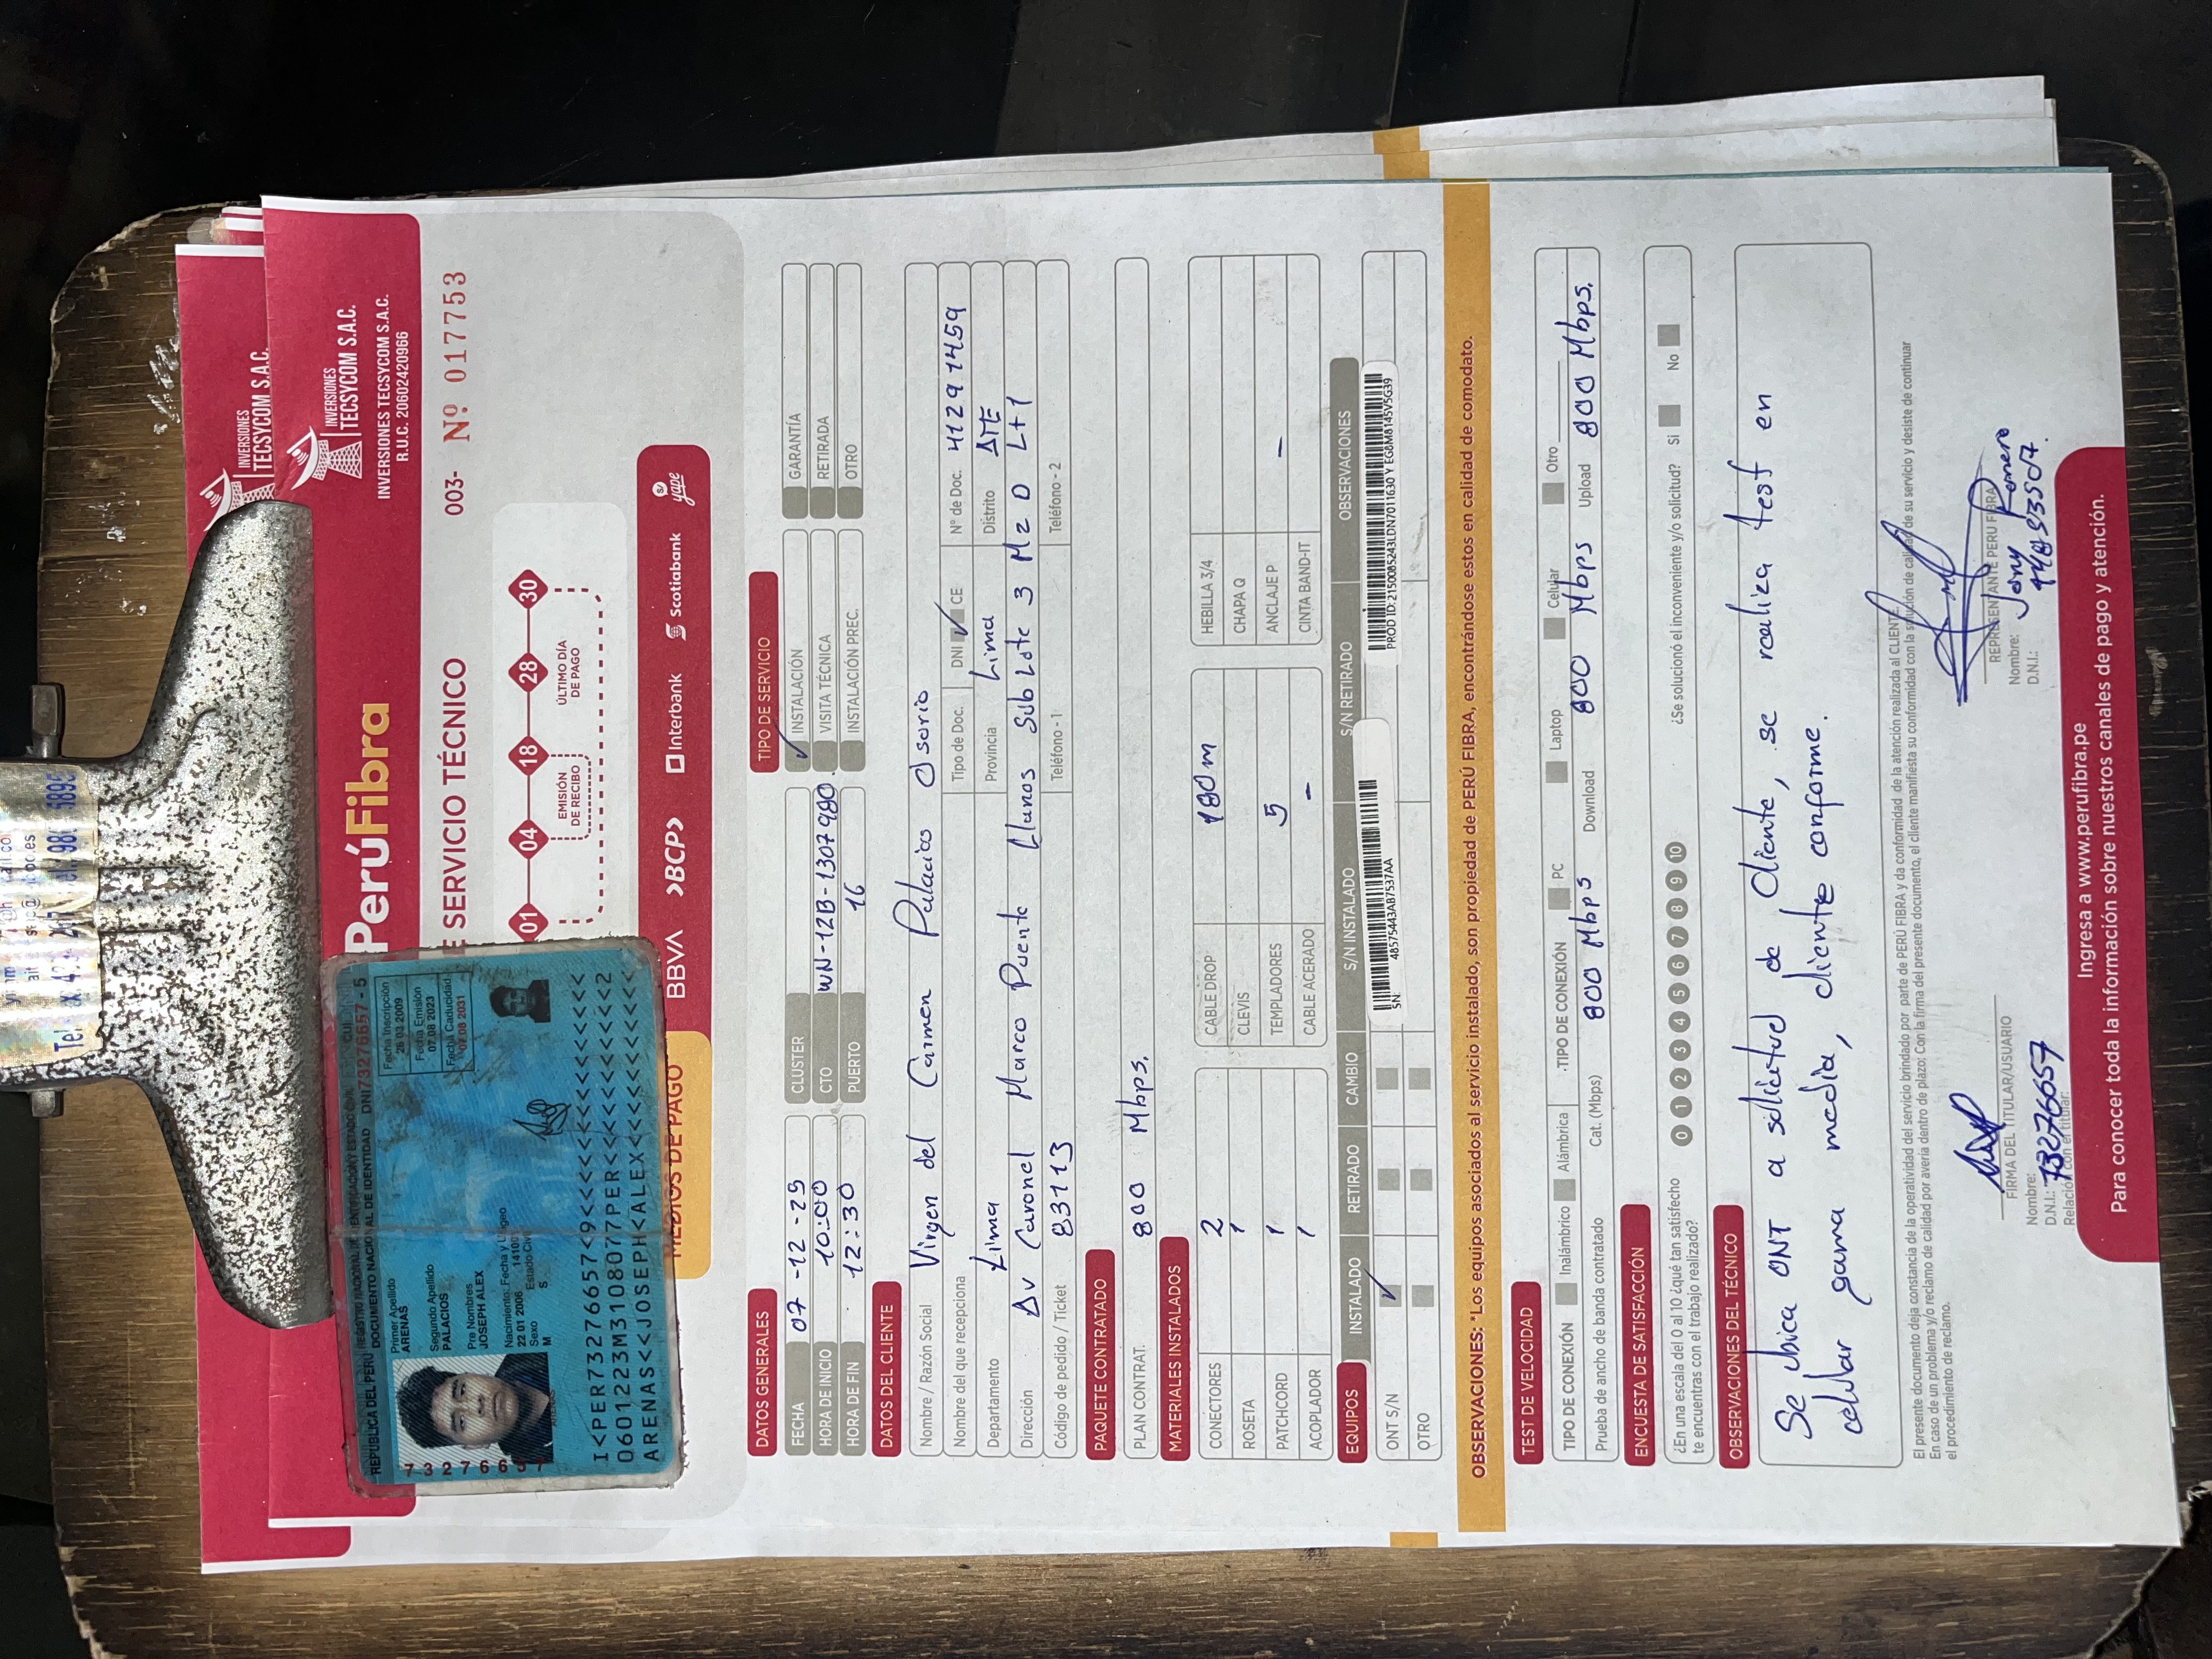 INVERSIONES
TECSYCOM S.A.C.
INVERSIONES
TECSYCOM S.A.C.
PerúFibra
INVERSIONES TECSYCOM S.A.C.
R.U.C. 20602420966
E SERVICIO TÉCNICO
003- Nº 017753
01 04 18 28 30
EMISIÓN DE RECIBO
ÚLTIMO DÍA DE PAGO
MEDIOS DE PAGO
BBVA >BCP> Interbank Scotiabank yape
REPÚBLICA DEL PERÚ
DOCUMENTO NACIONAL DE IDENTIDAD DNI 73276657 - 5
Primer Apellido
ARENAS
Segundo Apellido
PALACIOS
Pre Nombres
JOSEPH ALEX
Nacimiento: Fecha y Ubigeo
22 01 2006
Sexo Estado Civil
M S
Fecha Inscripción
26 03 2009
Fecha Emisión
07 08 2023
Fecha Caducidad
07 08 2031
I<PER73276657<9<<<<<<<<<<<<<<<
0601223M3108077PER<<<<<<<<<<<2
ARENAS<<JOSEPH<ALEX<<<<<<<<<<<
DATOS GENERALES
TIPO DE SERVICIO
FECHA 07-12-25 CLUSTER INSTALACIÓN GARANTÍA
HORA DE INICIO 10:00 CTO WN-12B-1307980 VISITA TÉCNICA RETIRADA
HORA DE FIN 12:30 PUERTO 16 INSTALACIÓN PREC. OTRO
DATOS DEL CLIENTE
Nombre / Razón Social Virgen del Carmen Palacios Osorio
Nombre del que recepciona Tipo de Doc. DNI CE Nº de Doc. 41291459
Departamento Lima Provincia Lima Distrito ATE
Dirección Av Coronel Marco Puente Llanos Sub Lote 3 Mz D Lt 1
Código de pedido / Ticket 83113 Teléfono - 1 Teléfono - 2
PAQUETE CONTRATADO
PLAN CONTRAT. 800 Mbps.
MATERIALES INSTALADOS
CONECTORES 2 CABLE DROP 180m HEBILLA 3/4
ROSETA 1 CLEVIS CHAPA Q
PATCHCORD 1 TEMPLADORES 5 ANCLAJE P -
ACOPLADOR 1 CABLE ACERADO - CINTA BAND-IT
EQUIPOS INSTALADO RETIRADO CAMBIO S/N INSTALADO S/N RETIRADO OBSERVACIONES
ONT S/N SN: 48575443AB7537AA PROD ID: 2150085243LDN7011630 Y EG8M8145V5G39
OTRO
OBSERVACIONES: *Los equipos asociados al servicio instalado, son propiedad de PERÚ FIBRA, encontrándose estos en calidad de comodato.
TEST DE VELOCIDAD
TIPO DE CONEXIÓN Inalámbrico Alámbrica .TIPO DE CONEXIÓN PC Laptop Celular Otro
Prueba de ancho de banda contratado Cat. (Mbps) 800 Mbps Download 800 Mbps Upload 800 Mbps.
ENCUESTA DE SATISFACCIÓN
¿En una escala del 0 al 10 ¿qué tan satisfecho te encuentras con el trabajo realizado? 0 1 2 3 4 5 6 7 8 9 10 ¿Se solucionó el inconveniente y/o solicitud? Si No
OBSERVACIONES DEL TÉCNICO
Se ubica ONT a solicitud de Cliente, se realiza test en
celular gama media, cliente conforme.
El presente documento deja constancia de la operatividad del servicio brindado por parte de PERÚ FIBRA y da conformidad de la atención realizada al CLIENTE.
En caso de un problema y/o reclamo de calidad por avería dentro de plazo: Con la firma del presente documento, el cliente manifiesta su conformidad con la solución de calidad de su servicio y desiste de continuar
el procedimiento de reclamo.
FIRMA DEL TITULAR/USUARIO REPRESENTANTE PERÚ FIBRA
Nombre: Nombre: Jony Romero
D.N.I.: 73276657 D.N.I.:
Relación con el titular:
Ingresa a www.perufibra.pe
Para conocer toda la información sobre nuestros canales de pago y atención.